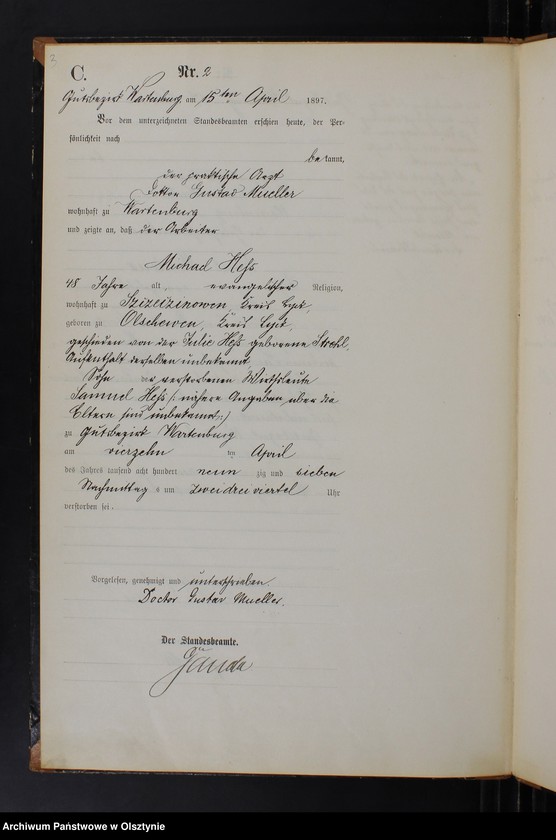 3
C. Nr. 2
Gutsbezirk Wartenburg am 15ten April 1897.
Vor dem unterzeichneten Standesbeamten erschien heute, der Per-
sönlichkeit nach
bekannt,
der praktische Arzt
Doktor Gustav Mueller
wohnhaft zu Wartenburg
und zeigte an, daß der Arbeiter
Michael Heß
48 Jahre alt, evangelischer Religion,
wohnhaft zu Kreis Lyck,
geboren zu Olschewen, Kreis Lyck,
geschieden von der Julie Heß geborene
Aufenthalt derselben unbekannt
Sohn der verstorbenen Wirthsleute
Samuel Heß /: nähere Angaben über die
Eltern sind unbekannt :/
zu Gutsbezirk Wartenburg
am vierzehn ten April
des Jahres tausend acht hundert neun zig und sieben
Nachmittag s um zweidreiviertel Uhr
verstorben sei.
Vorgelesen, genehmigt und unterschrieben.
Doctor Gustav Mueller.
Der Standesbeamte.
Archiwum Państwowe w Olsztynie